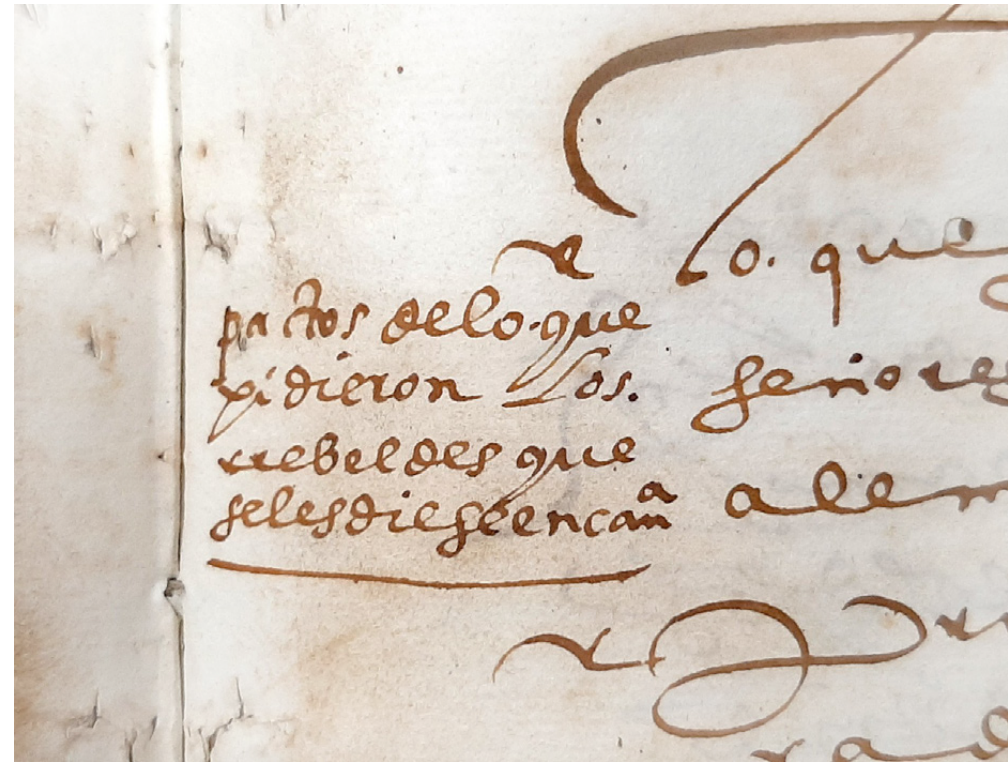 pactos de lo que
pidieron los.
rrebeldes que
seles diese en can^a
lo. que
señores
alem